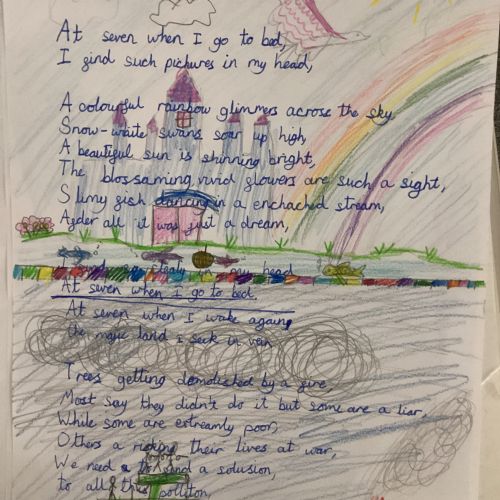 At seven when I go to bed,
I find such pictures in my head,
A colourful rainbow glimmers across the sky,
Snow-waite swans soar up high,
A beautiful sun is shinning bright,
The blossaming vivid flowers are such a sight,
Slimy fish dancing in a enchached stream,
After all it was just a dream,
in my head
At seven when I go to bed.
At seven when I wake again,
the magic land I seek in vein
Trees getting demolished by a fire
Most say they didn't do it but some are a liar,
While some are extreamly poor,
Others a risking their lives at war,
We need a to find a solusion,
to all this pollton,